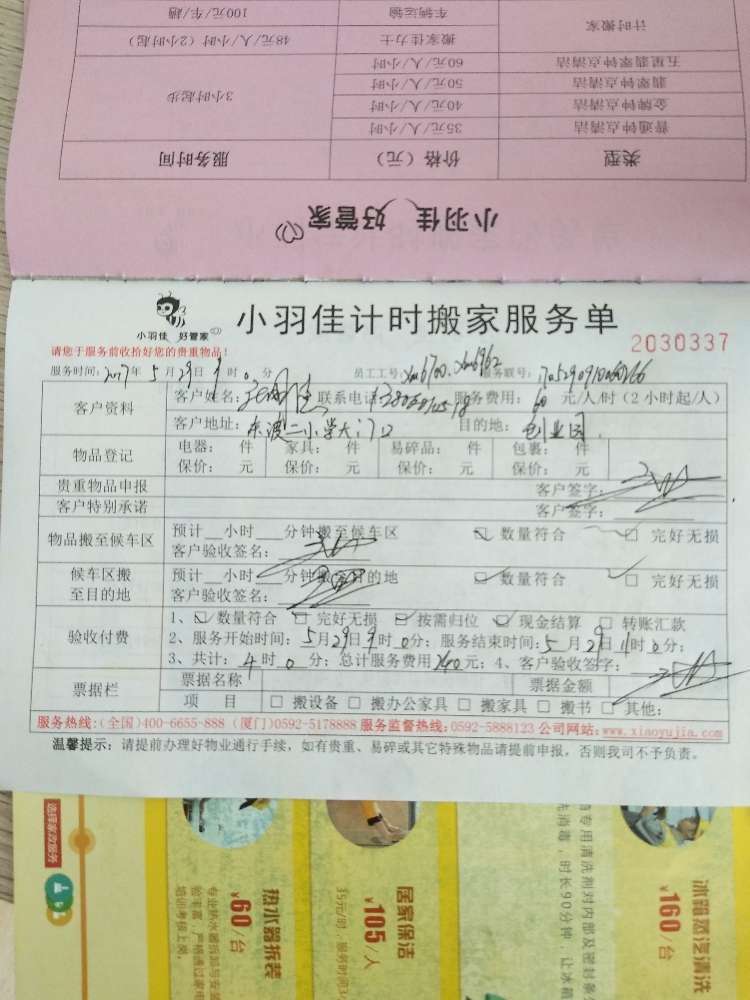 100元/车/趟 车辆运输 计时搬家
48元/人/小时(2小时起) 搬家佳力士
60元/人/小时 五星翡翠钟点清洁
3小时起步 50元/人/小时 翡翠钟点清洁
40元/人/小时 金牌钟点清洁
35元/人/小时 普通钟点清洁
服务时间 价格(元) 类型
小羽佳 好管家
小羽佳 好管家
小羽佳计时搬家服务单
2030337
请您于服务前收拾好您的贵重物品!
服务时间:2017年5月29日9时0分 员工工号: 服务联号:
客户资料 客户姓名: 联系电话: 服务费用:60元/人/时(2小时起/人)
客户地址:东渡二小学大门口 目的地:创业园
物品登记 电器: 件 家具: 件 易碎品: 件 包裹: 件
保价: 元 保价: 元 保价: 元 保价: 元
贵重物品申报 客户签字:
客户特别承诺 客户签字:
物品搬至候车区 预计__小时__分钟搬至候车区 ☑数量符合 □完好无损
客户验收签名:
候车区搬至目的地 预计__小时__分钟搬至目的地 ☑数量符合 □完好无损
客户验收签名:
验收付费 1、☑数量符合 □完好无损 ☑按需归位 ☑现金结算 □转账汇款
2、服务开始时间:5月29日9时0分;服务结束时间:5月29日11时0分;
3、共计:4时0分;总计服务费用240元;4、客户验收签字:
票据栏 票据名称 票据金额
项 目 □搬设备 □搬办公家具 □搬家具 □搬书 □其他:
服务热线:(全国)400-6655-888 (厦门)0592-5178888 服务监督热线:0592-5888123 公司网站:www.xiaoyujia.com
温馨提示:请提前办理好物业通行手续,如有贵重、易碎或其它特殊物品请提前申报,否则我司不予负责。
选择家政服务
热水器拆装
¥60/台
居家保洁
¥105/人
冰箱蒸汽清洗
¥160/台